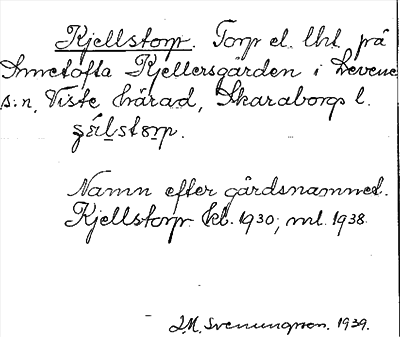 Kjellstorp. Torp el. lht. på
Smnetofta Kjellersgården i Levene
s:n, Viste härad, Skaraborgs l.
Namn efter gårdsnamnet.
Kjellstorp kl. 1930; ml. 1938
J.M. Svenungson. 1939.